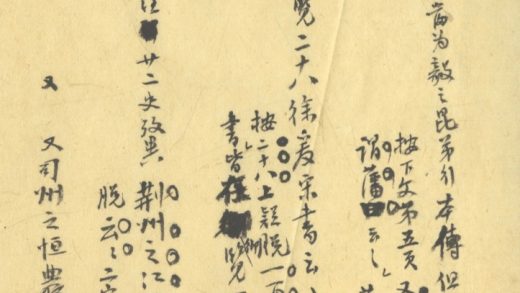 當为毅之昆弟引本傳但
按下文第五頁又
謂藩田云々
覽二十八徐爰宋書云
按二十八上疑脱一百
書皆在御覽
廿二史攷異 荆州之江
脱云々二字
又 又司州之恒農